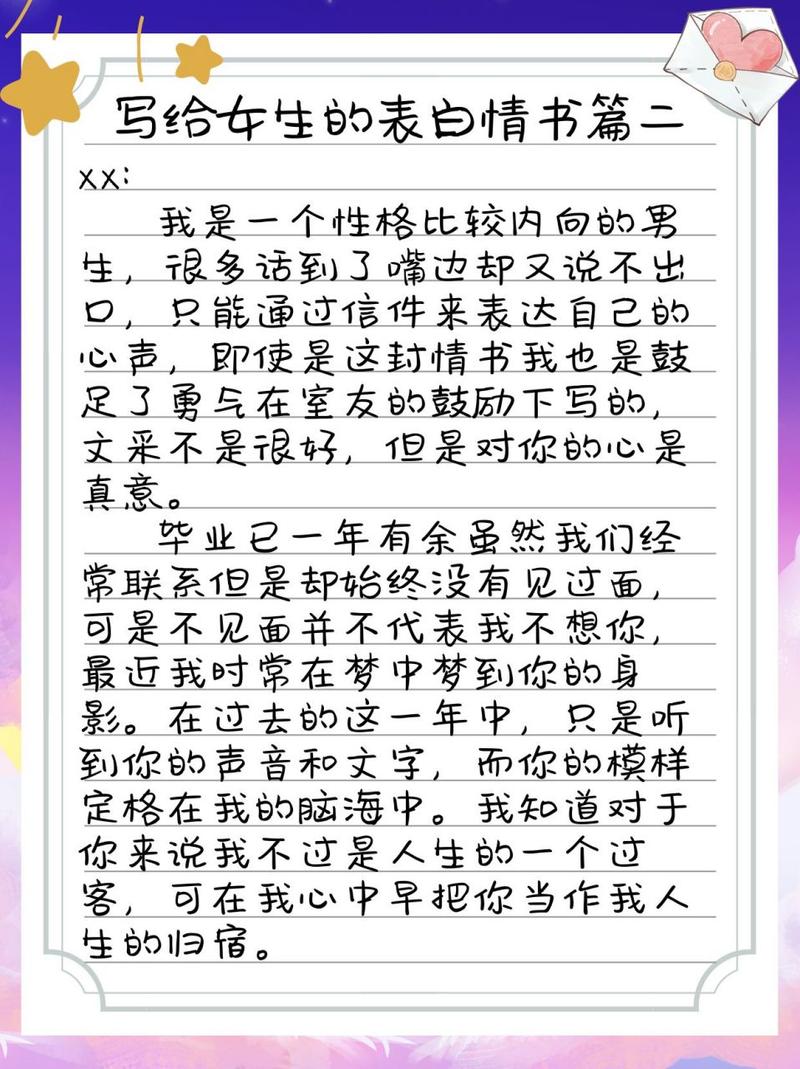 写给女生的表白情书篇二
xx：
我是一个性格比较内向的男
生，很多话到了嘴边却又说不出
口，只能通过信件来表达自己的
心声，即使是这封情书我也是鼓
足了勇气在室友的鼓励下写的，
文采不是很好，但是对你的心是
真意。
毕业已一年有余虽然我们经
常联系但是却始终没有见过面，
可是不见面并不代表我不想你，
最近我时常在梦中梦到你的身
影。在过去的这一年中，只是听
到你的声音和文字，而你的模样
定格在我的脑海中。我知道对于
你来说我不过是人生的一个过
客，可在我心中早把你当作我人
生的归宿。